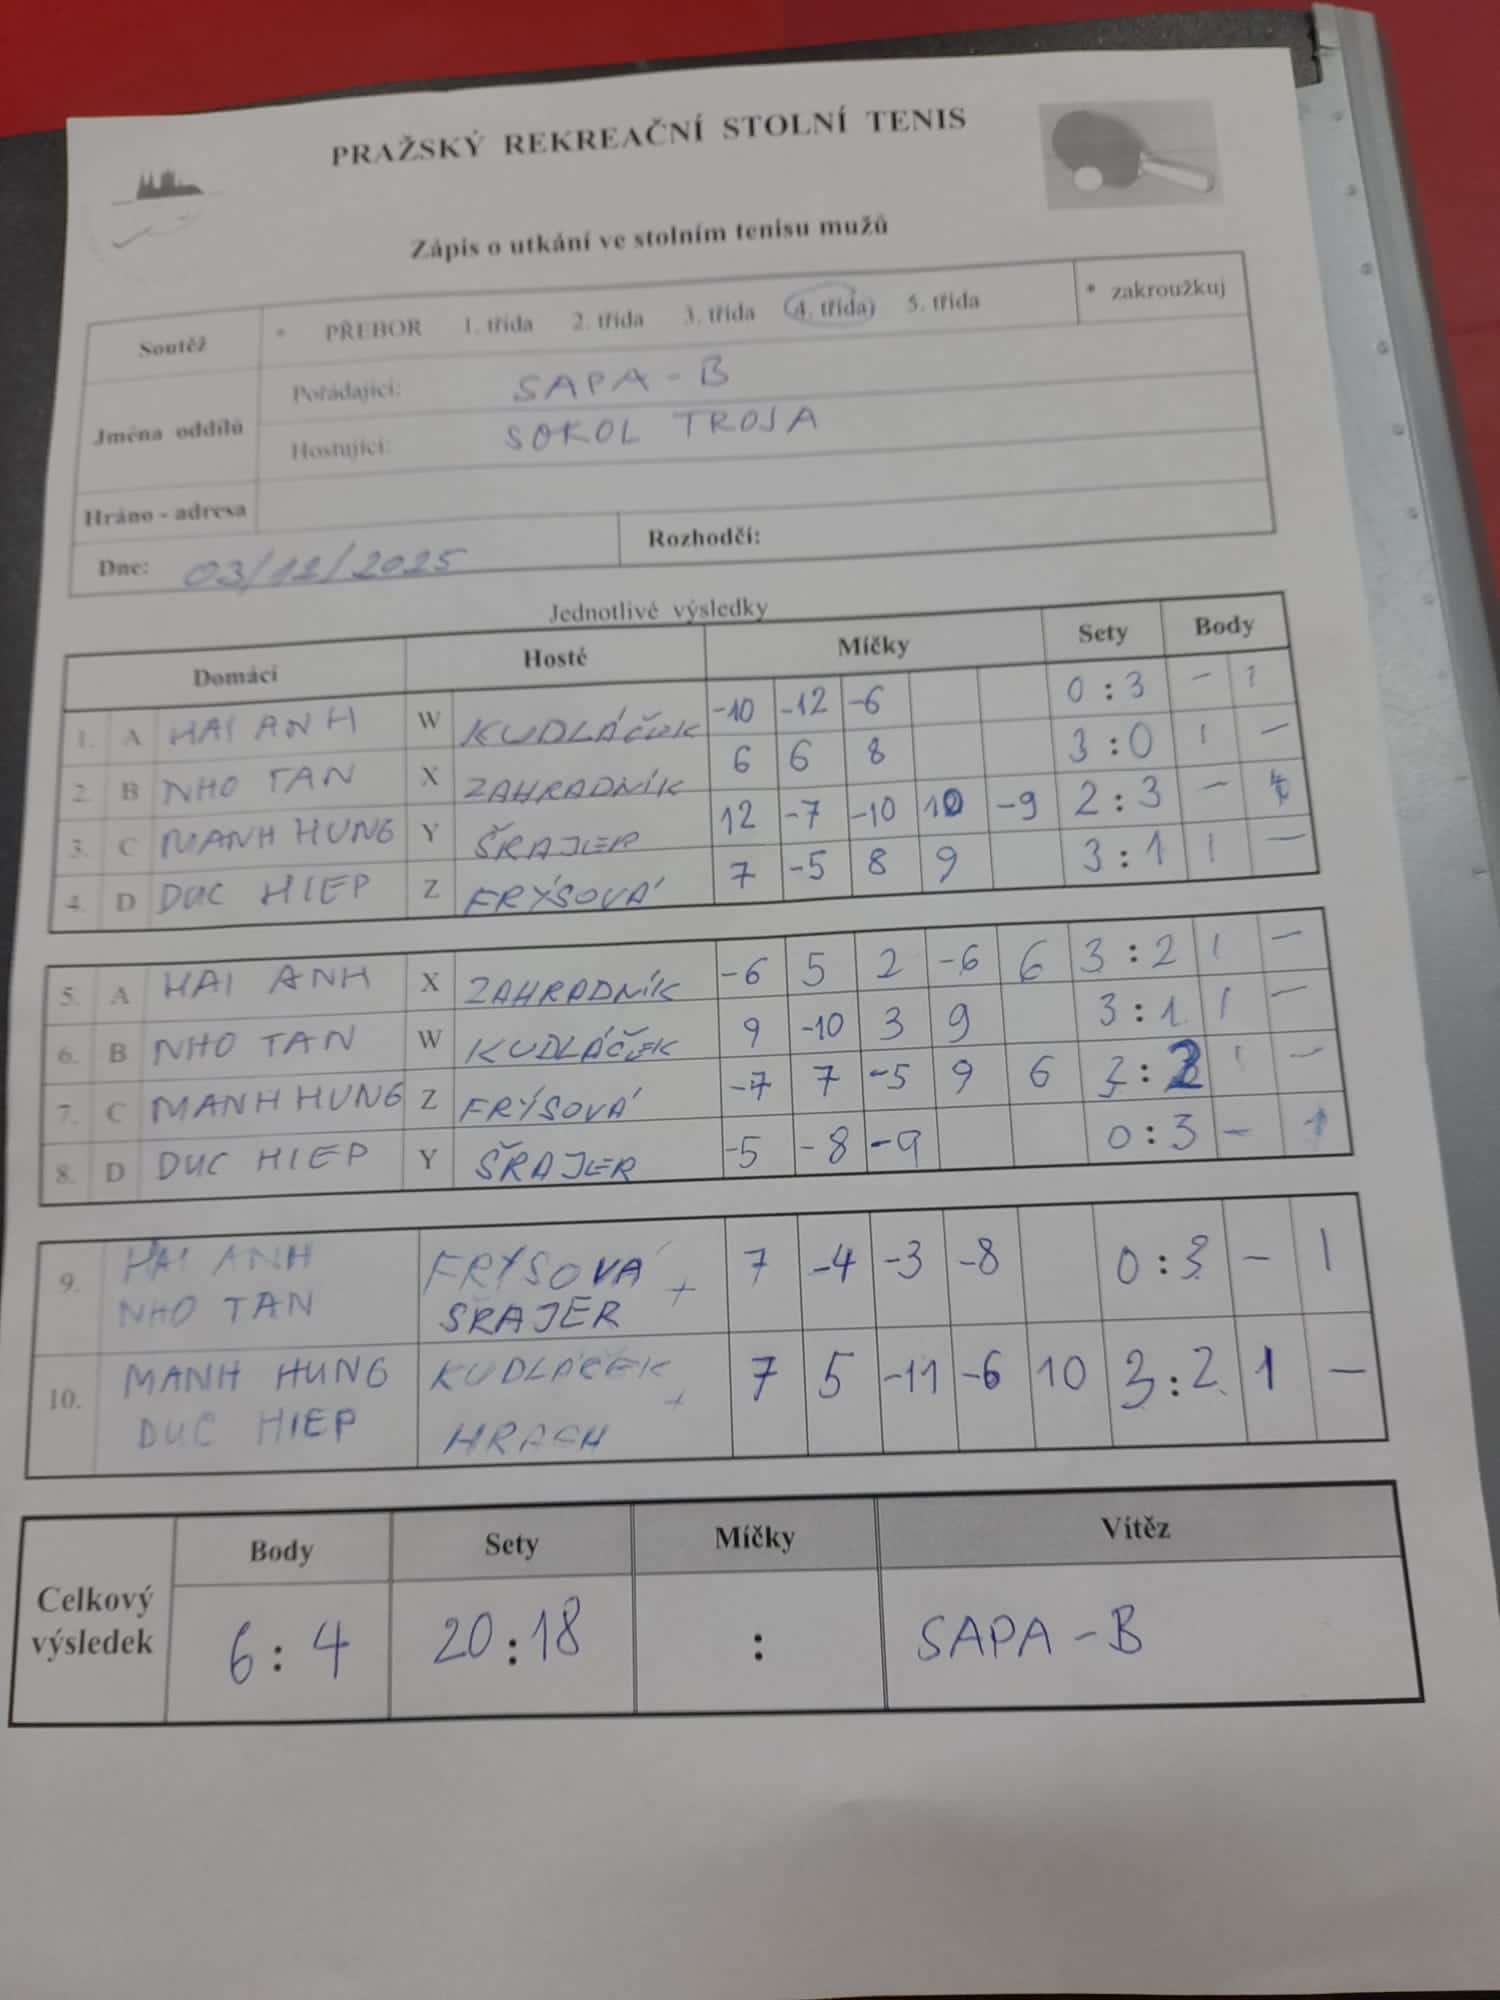 PRAŽSKÝ REKREAČNÍ STOLNÍ TENIS
Zápis o utkání ve stolním tenisu mužů
Soutěž * PŘEBOR 1. třída 2. třída 3. třída 4. třída 5. třída * zakroužkuj
Jména oddílů
Pořádající: SAPA - B
Hostující: SOKOL TROJA
Hráno - adresa
Dne: 03/12/2025 Rozhodčí:
Jednotlivé výsledky
Domácí Hosté Míčky Sety Body
1. A HAI ANH W KUDLÁČEK -10 -12 -6 0 : 3 - 1
2. B NHO TAN X ZAHRADNÍK 6 6 8 3 : 0 1 -
3. C MANH HUNG Y ŠRAJER 12 -7 -10 10 -9 2 : 3 - 1
4. D DUC HIEP Z FRÝSOVÁ 7 -5 8 9 3 : 1 1 -
5. A HAI ANH X ZAHRADNÍK -6 5 2 -6 6 3 : 2 1 -
6. B NHO TAN W KUDLÁČEK 9 -10 3 9 3 : 1 1 -
7. C MANH HUNG Z FRÝSOVÁ -7 7 -5 9 6 3 : 2 1 -
8. D DUC HIEP Y ŠRAJER -5 -8 -9 0 : 3 - 1
9. HAI ANH FRÝSOVÁ + 7 -4 -3 -8 0 : 3 - 1
NHO TAN ŠRAJER
10. MANH HUNG KUDLÁČEK + 7 5 -11 -6 10 3 : 2 1 -
DUC HIEP HRACH
Celkový výsledek
Body Sety Míčky Vítěz
6 : 4 20 : 18 : SAPA - B